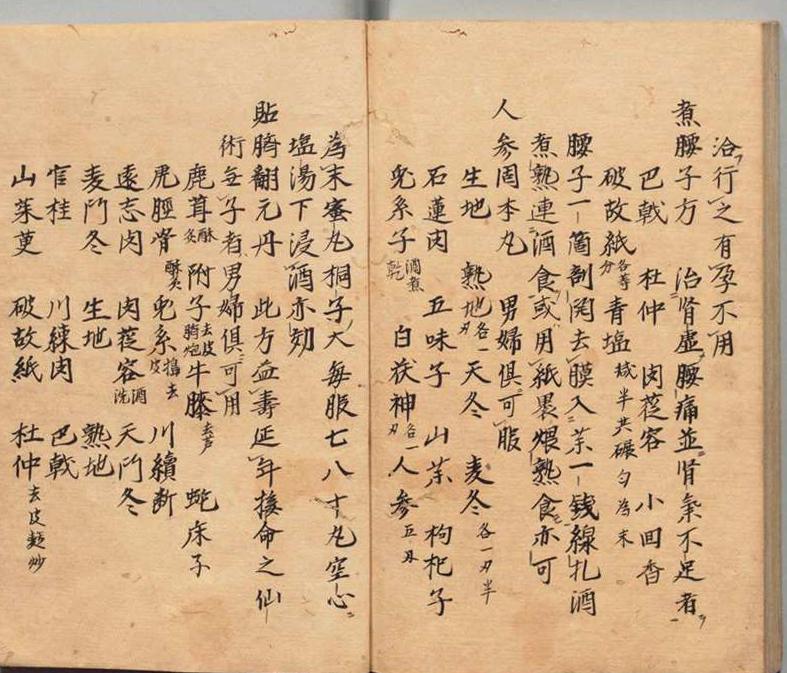 治行之有孕不用
煮腰子方 治腎虛腰痛並腎氣不足者
巴戟 杜仲 肉蓯容 小囬香
破故紙各等分 青塩 半共碾勻為末
腰子一箇剖開去膜入茶一錢線扎酒
煮熟連酒食或用紙裹煨熟食亦可
人参固本丸 男婦俱可服
生地 熟地各一刄 天冬 麦冬各一刄半
石蓮肉 五味子 山茱 枸杞子
兎糸子酒煮乾 白茯神各一刄 人参五刄
為末蜜丸桐子大每服七八十丸空心
塩湯下浸酒亦効
貼臍翻元丹 此方益壽延年接命之仙
術無子者男婦俱可用
鹿茸酥炙 附子去皮臍炮 牛膝去芦 蛇床子
虎脛骨酥炙 兎糸搗去皮 川續断
遠志肉 肉蓯容酒洗 天門冬
麦門冬 生地 熟地
官桂 川練肉 巴戟
山茱萸 破故紙 杜仲去皮麵炒